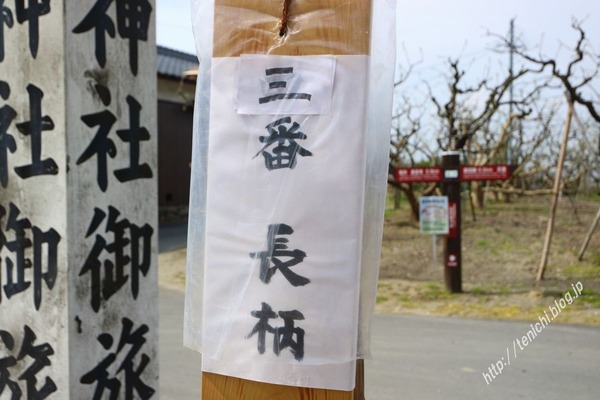 三番
長柄
神社御旅
神社御旅
http://tenichi.blog.jp